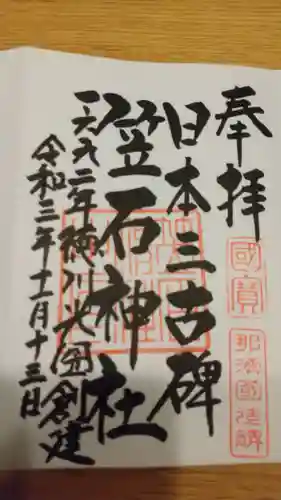 奉拝
國寶
那須國造碑
日本三古碑
笠石神社
一六九二年徳川光圀創建
令和三年十一月十三日